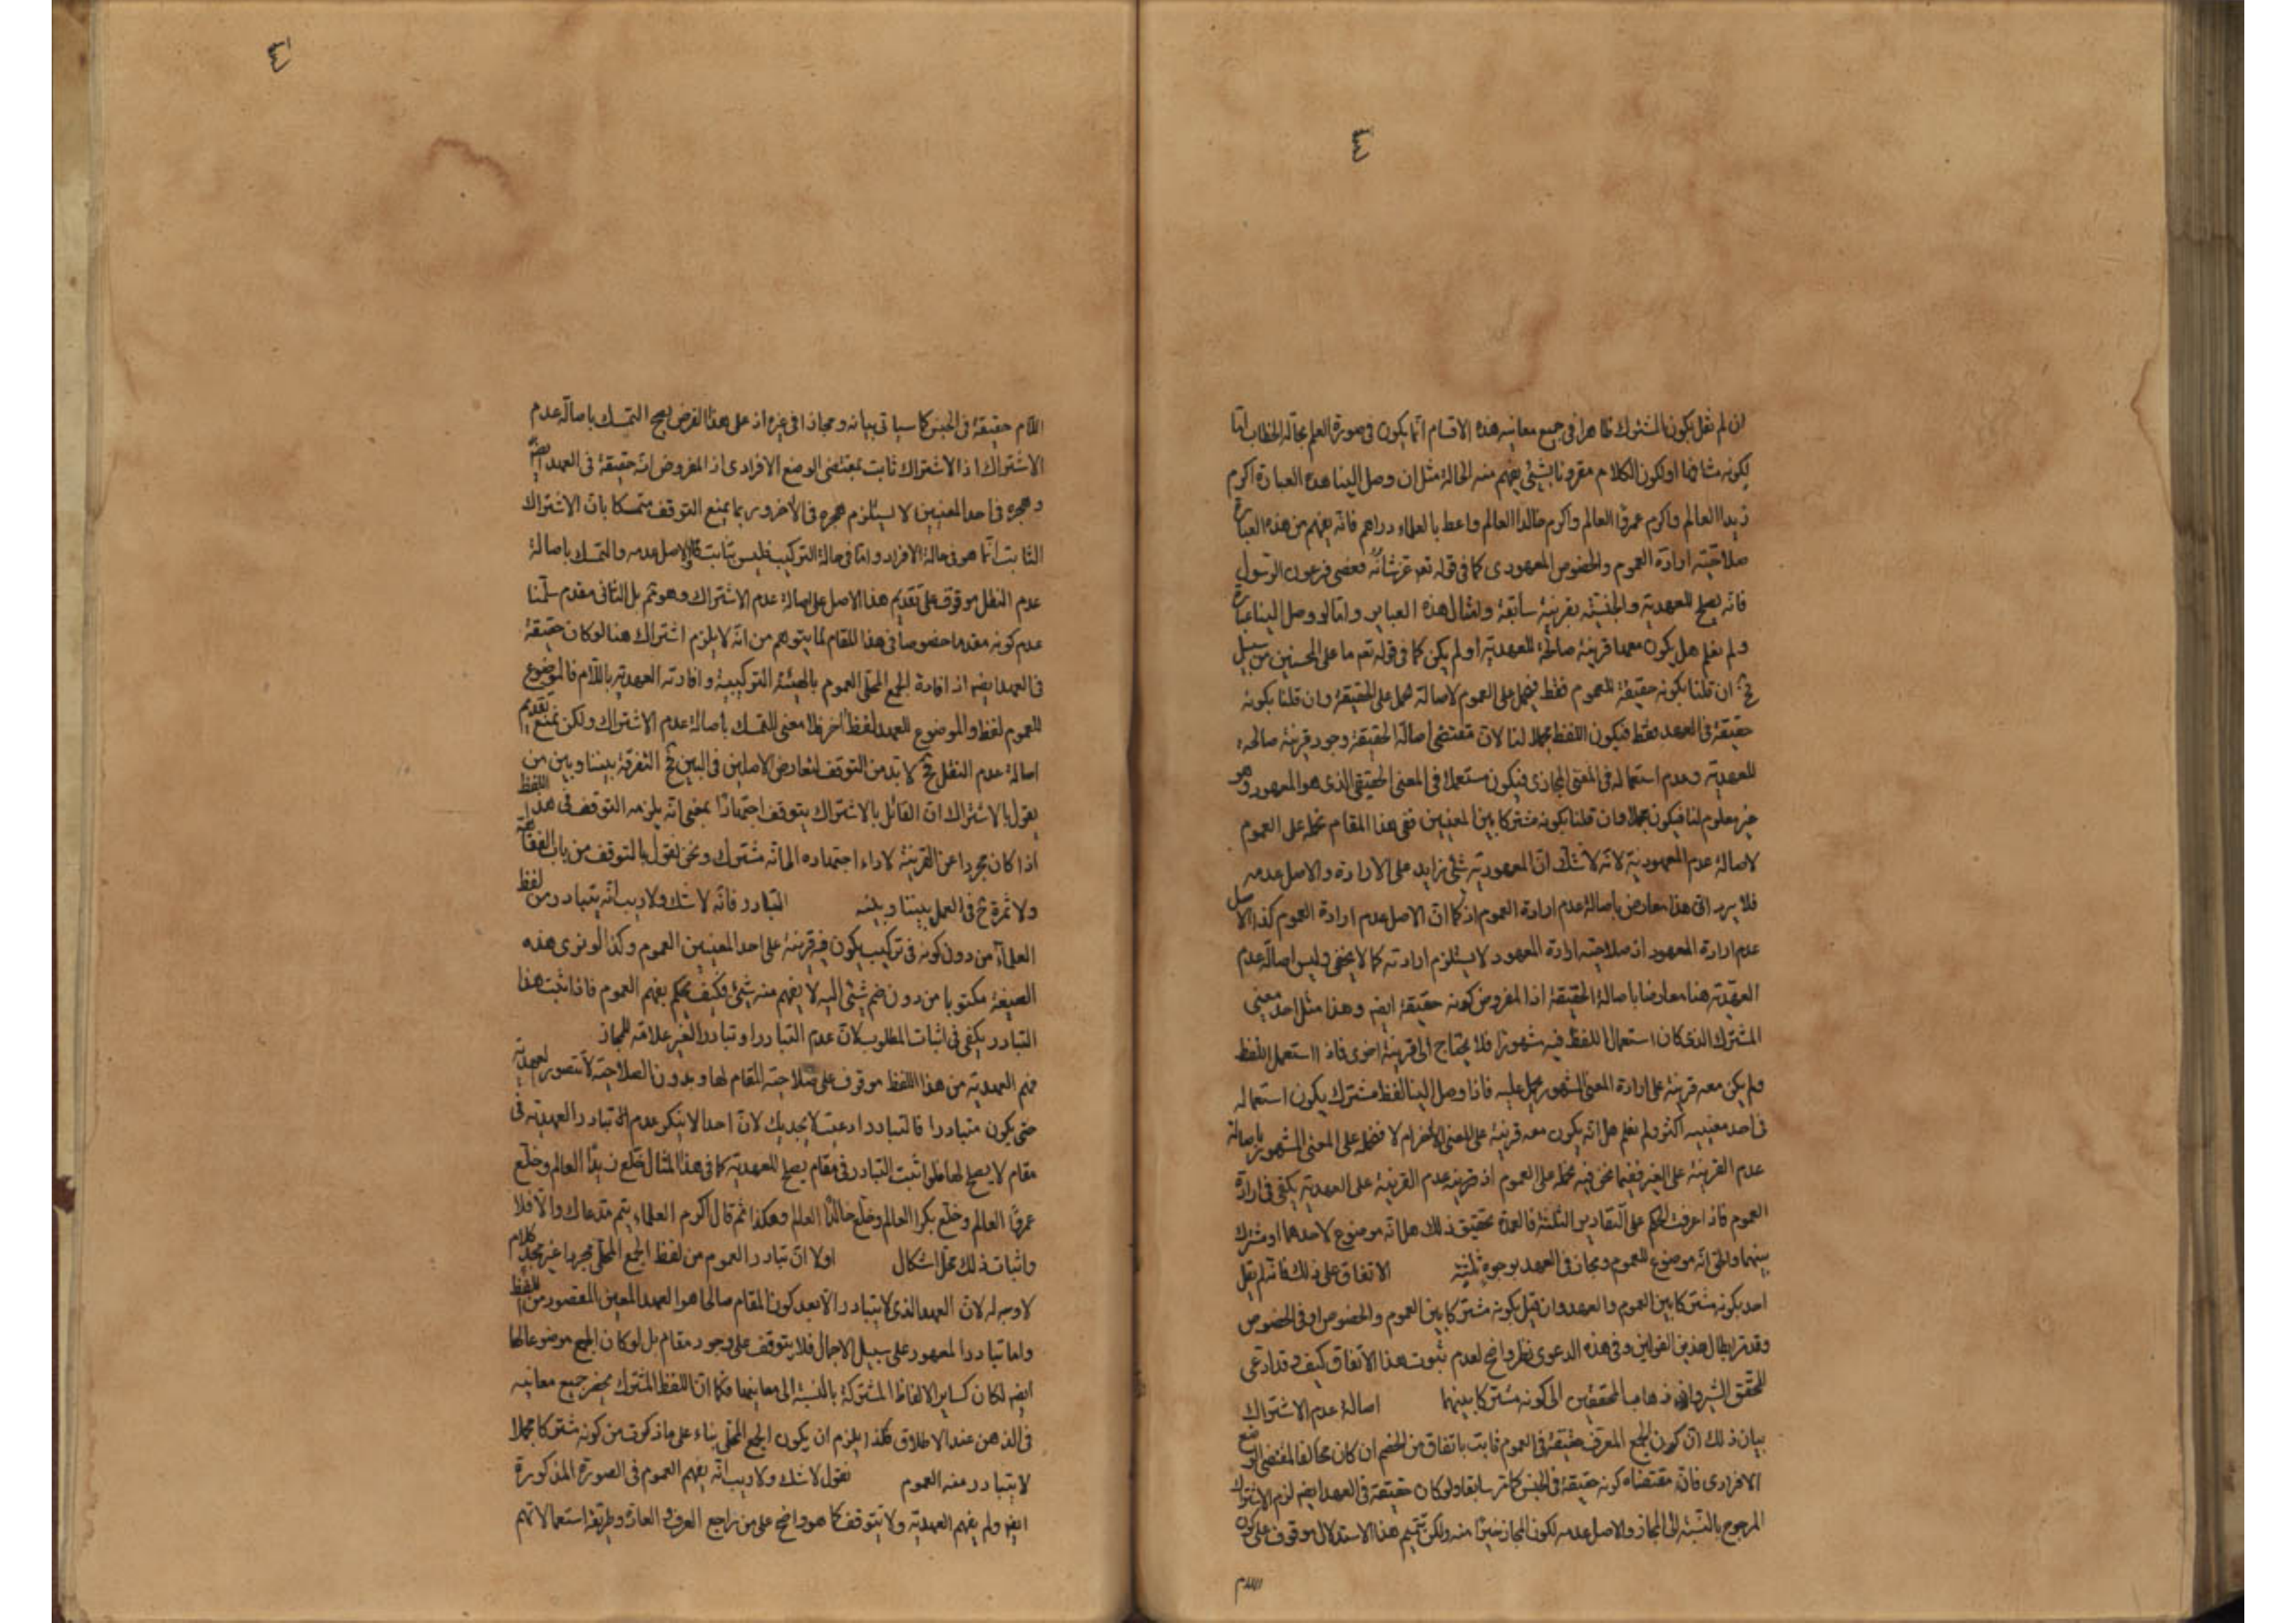 ان لم نقل بكون المشترك ظاهرا فى جميع معانيه هذه الاقسام انما يكون فى صورة العلم بحالة الخطاب اما
لكونه مشافها او لكون الكلام مقرونا بشئ يفهم منه الحالة مثل ان وصل الينا هذه العبارة اكرم
زيدا العالم واكرم عمروًا العالم واكرم خالدا العالم واعط بالعلماء دراهم فانه يفهم من هذه العبارة
صلاحيته ارادة العموم والخصوص المعهودى كما فى قوله تعـ عز شانه فعصى فرعون الرسول
فانه يصلح للعهدية والجنسية بقرينة سابقة وامثال هذه العباير واما لو وصل الينا عبارة
ولم نعلم هل يكون معها قرينة صالحة للعهدية او لم يكن كما فى قوله تعـ ما على المحسنين من سبيل
فح ان قلنا بكونه حقيقة للعموم فقط فيحمل على العموم لاصالة حمل على الحقيقة وان قلنا بكونه
حقيقة فى العهد فقط فيكون اللفظ مجملا لنا لان مقتضى اصالة الحقيقة وجود قرينة صالحة
للعهدية وعدم استعماله فى المعنى المجازى فيكون مستعملا فى المعنى الحقيقى الذى هو المعهود وهو
غير معلوم لنا فيكون مجملا وان قلنا بكونه مشتركا بين المعنيين ففى هذا المقام نحمله على العموم
لاصالة عدم المعهودية لانه لا شك ان المعهودية شئ زايد على الارادة والاصل عدمه
فلا يرد ان هذا معارض باصالة عدم ارادة العموم اذ كما ان الاصل عدم ارادة العموم كذا الاصل
عدم ارادة المعهود اذ صلاحيته ارادة المعهود لا يستلزم ارادته كما لا يخفى وليس اصالة عدم
العهدية هنا معارضا باصالة الحقيقة اذ المفروض كونه حقيقة ايضه وهذا مثل احد معنيى
المشترك الذى كان استعمال اللفظ فيه مشهورا فلا يحتاج الى قرينة اخرى فاذا استعمل اللفظ
ولم يكن معه قرينة على ارادة المعنى المشهور يحمل عليه فاذا وصل الينا لفظ مشترك يكون استعماله
فى احد معنييه اكثر ولم نعلم هل انه يكون معه قرينة على المعنى الاخر ام لا فنحمله على المعنى المشهور باصالة
عدم القرينة على الغير ففيما نحن فيه نحمله على العموم اذ قرينة عدم القرينة على العهدية يكفى فى ارادة
العموم فاذا عرفت الحكم على التقادير الثلثة فالعمدة تحقيق ذلك هل انه موضوع لاحدهما او مشترك
بينهما والحق انه موضوع للعموم ومجاز فى العهد بوجوه ثلثة الاتفاق على ذلك فانه لم يقل
احد بكونه مشتركا بين العموم والعهد وان قيل بكونه مشتركا بين العموم والخصوص او فى الخصوص
وقد مر ابطال هذين القولين وفى هذه الدعوى نظر واضح لعدم ثبوت هذا الاتفاق كيف وقد ادعى
المحقق الشيروانى ذهاب المحققين الى كونه مشتركا بينهما اصالة عدم الاشتراك
بيان ذلك ان كون الجمع المعرف حقيقة فى العموم ثابت باتفاق من الخصم ان كان مخالفا لمقتضى الوضع
الافرادى فان مقتضاه كونه حقيقة فى الجنس كما مر سابقا ولو كان حقيقة فى العهد ايضه لزم الاشتراك
المرجوح بالنسبة الى المجاز والاصل عدمه لكون المجاز خيرًا منه ولكن تتميم هذا الاستدلال موقوف على كون
اللام
اللام حقيقة فى الجنس كما سياتى بيانه ومجازا فى غيره اذ على هذا الفرض يصح التمسك باصالة عدم
الاشتراك اذ الاشتراك ثابت بمقتضى الوضع الافرادى اذ المفروض انه حقيقة فى العهد ايضه
وهجره فى احد المعنيين لا يستلزم هجره فى الاخر وربما يمنع التوقف متمسكا بان الاشتراك
الثابت انما هو فى حالة الافراد واما فى حالة التركيب فليس بثابت فالاصل عدمه والتمسك باصالة
عدم النقل موقوف على تقديم هذا الاصل على اصالة عدم الاشتراك وهو ثم بل الثانى مقدم سلمنا
عدم كونه مقدما خصوصا فى هذا المقام لما يتوهم من انه لا يلزم اشتراك هنا لو كان حقيقة
فى العهد ايضه اذ افادة الجمع المحلى العموم بالهيئة التركيبية وافادته العهدية باللام فالموضوع
للعموم لفظ والموضوع للعهد لفظ اخر فلا معنى للتمسك باصالة عدم الاشتراك ولكن نمنع تقديم
اصالة عدم النقل فح لا بد من التوقف لتعارض الاصلين فى البين فح التفرقة بيننا وبين من
يقول بالاشتراك ان القائل بالاشتراك يتوقف اجتهادًا بمعنى انه يلزمه التوقف فى هذا اللفظ
اذا كان مجردا عن القرينة لاداء اجتهاده الى انه مشترك ونحن نقول بالتوقف من باب الفقاهة
ولا ثمرة فح فى العمل بيننا وبينه التبادر فانه لا شك ولا ريب انه يتبادر من لفظ
العلماء من دون كونه فى تركيب يكون فيه قرينة على احد المعنيين العموم وكذا لو نرى هذه
الصيغة مكتوبا من دون ضم شئ اليه لا يفهم منه شئ فكيف يحكم بفهم العموم فاذا ثبت هذا
التبادر يكفى فى اثبات المطلوب لان عدم التبادر او تبادر الغير علامة للمجاز
فهم العهدية من هذا اللفظ موقوف على صلاحية المقام لها وبدون الصلاحية لا تتصور العهدية
حتى يكون متبادرا فالتبادر ادعيت لا يجديك لان احدا لا ينكر عدم تبادر العهدية فى
مقام لا يصلح لها فلو اثبت التبادر فى مقام يصلح للعهدية كما فى هذا المثال خلع زيدًا العالم وخلع
عمروًا العالم وخلع بكرا العالم وخلع خالدًا العالم وهكذا ثم قال اكرم العلماء يتم مدعاك والا فلا
واثبات ذلك محل اشكال اولا ان تبادر العموم من لفظ الجمع المحلى مجردا عن كلام
لا وجه له لان العهد الذى لا يتبادر الا بعد كون المقام صالحا هو العهد المعين المقصود من اللفظ
واما تبادر المعهود على سبيل الاجمال فلا يتوقف على وجود مقام بل لو كان الجمع موضوعا لها
ايضه لكان كساير الالفاظ المشتركة بالنسبة الى معانيها فكما ان اللفظ المشترك يحضر جميع معانيه
فى الذهن عند الاطلاق فكذا يلزم ان يكون الجمع المحلى بناء على ما ذكرت من كونه مشتركا مجملا
لا يتبادر منه العموم نقول لا شك ولا ريب انه يفهم العموم فى الصورة المذكورة
ايضه ولم يفهم العهدية ولا يتوقف كما هو واضح على من راجع العرف والعادة وطريقة استعمالاتهم